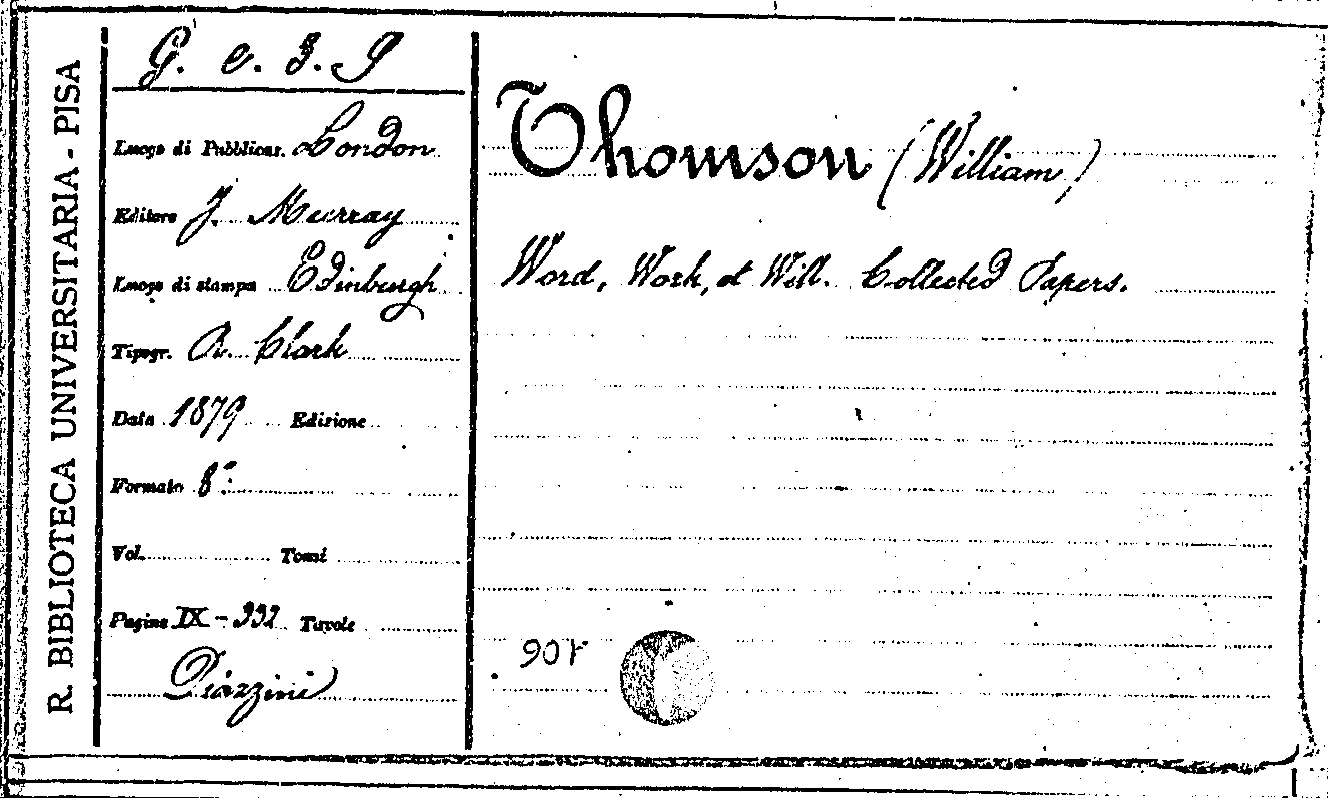 R. BIBLIOTECA UNIVERSITARIA - PISA
G. e. 3. 9
Luogo di Pubblicaz. London
Editore J. Murray
Luogo di stampa Edinburgh
Tipogr. R. Clark
Data 1879 Edizione
Formato 8°:
Vol. Tomi
Pagine IX - 332 Tavole
Piazzini
Thomson (William)
Word, Work, et Will. Collected Papers.